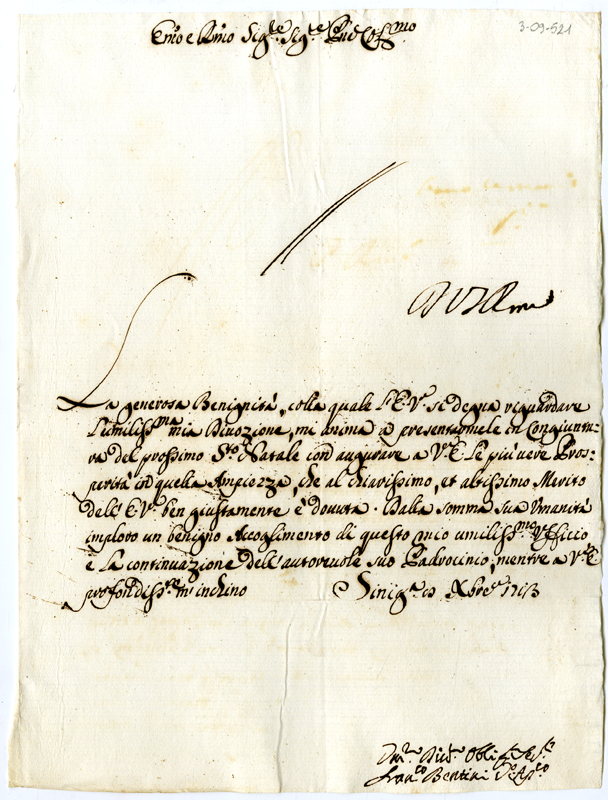 3-09-521
Em͞o e R͞mo Sig.re Sig.re P͞ne Col.mo
La generosa Benignità, colla quale l'E.V.a si degna riguardare
l'umiliss.ma mia Divozione, mi anima a presentarmele in Congiuntu-
ra del prossimo S.to Natale con augurare a V.a E. le più vere Pros-
perità in quella Ampiezza, che al chiarissimo, et altissimo Merito
dell'E.V.a ben giustamente è dovuta. Dalla somma sua Umanità
imploro un benigno Accoglimento di questo mio umiliss.mo Ufficio
e la continuazione dell'autorevole suo Padrocinio, mentre a V.a E.
profondiss.te m'inchino Sinig.a Xbre 1713
Um.o Div.o Obblig.o Ser.e
Fran.co Bentini